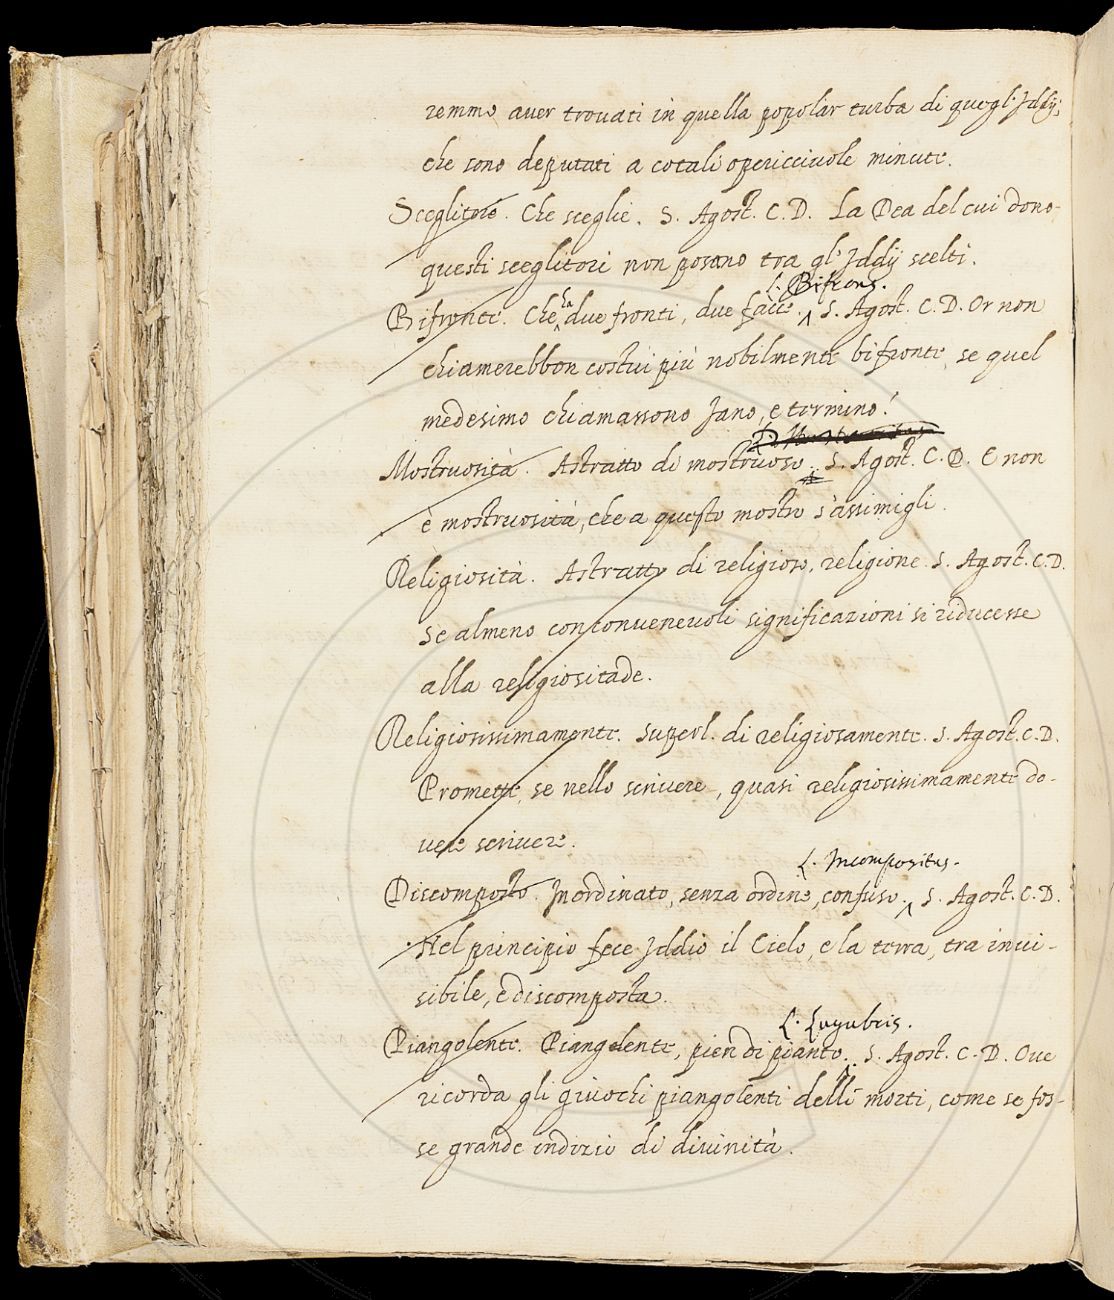 remmo auer trouati in quella popolar turba di quegl'Iddij,
che sono deputati a cotali opericciuole minute.
Sceglitore. Che sceglie. S. Agost. C. D. La Dea del cui dono
questi sceglitori non posano tra gl'Iddij scelti.
L. Bifrons.
Bifronte. Che ha due fronti, due facce. S. Agost. C. D. Or non
chiamerebbon costui più nobilmente bifronte, se quel
medesimo chiamassono Jano, e termino?
Mostruosità. Astratto di mostruoso. S. Agost. C. D. E non
è mostruosità, che a questo mostro s'assimigli.
Religiosità. Astratto di religioso, religione. S. Agost. C. D.
Se almeno con conuenevoli significazioni si riducesse
alla religiositade.
Religiosissimamente. Superl. di religiosamente. S. Agost. C. D.
Promette, se nello scriuere, quasi religiosissimamente do-
uere scriuere.
L. Incompositus.
Discomposto. Inordinato, senza ordine, confuso. S. Agost. C. D.
Nel principio fece Iddio il Cielo, e la terra, era inui-
sibile, e discomposta.
L. Lugubris.
Piangolente. Piangente, pien di pianto. S. Agost. C. D. Oue
ricorda gli giuochi piangolenti delli morti, come se fos-
se grande indizio di diuinità.